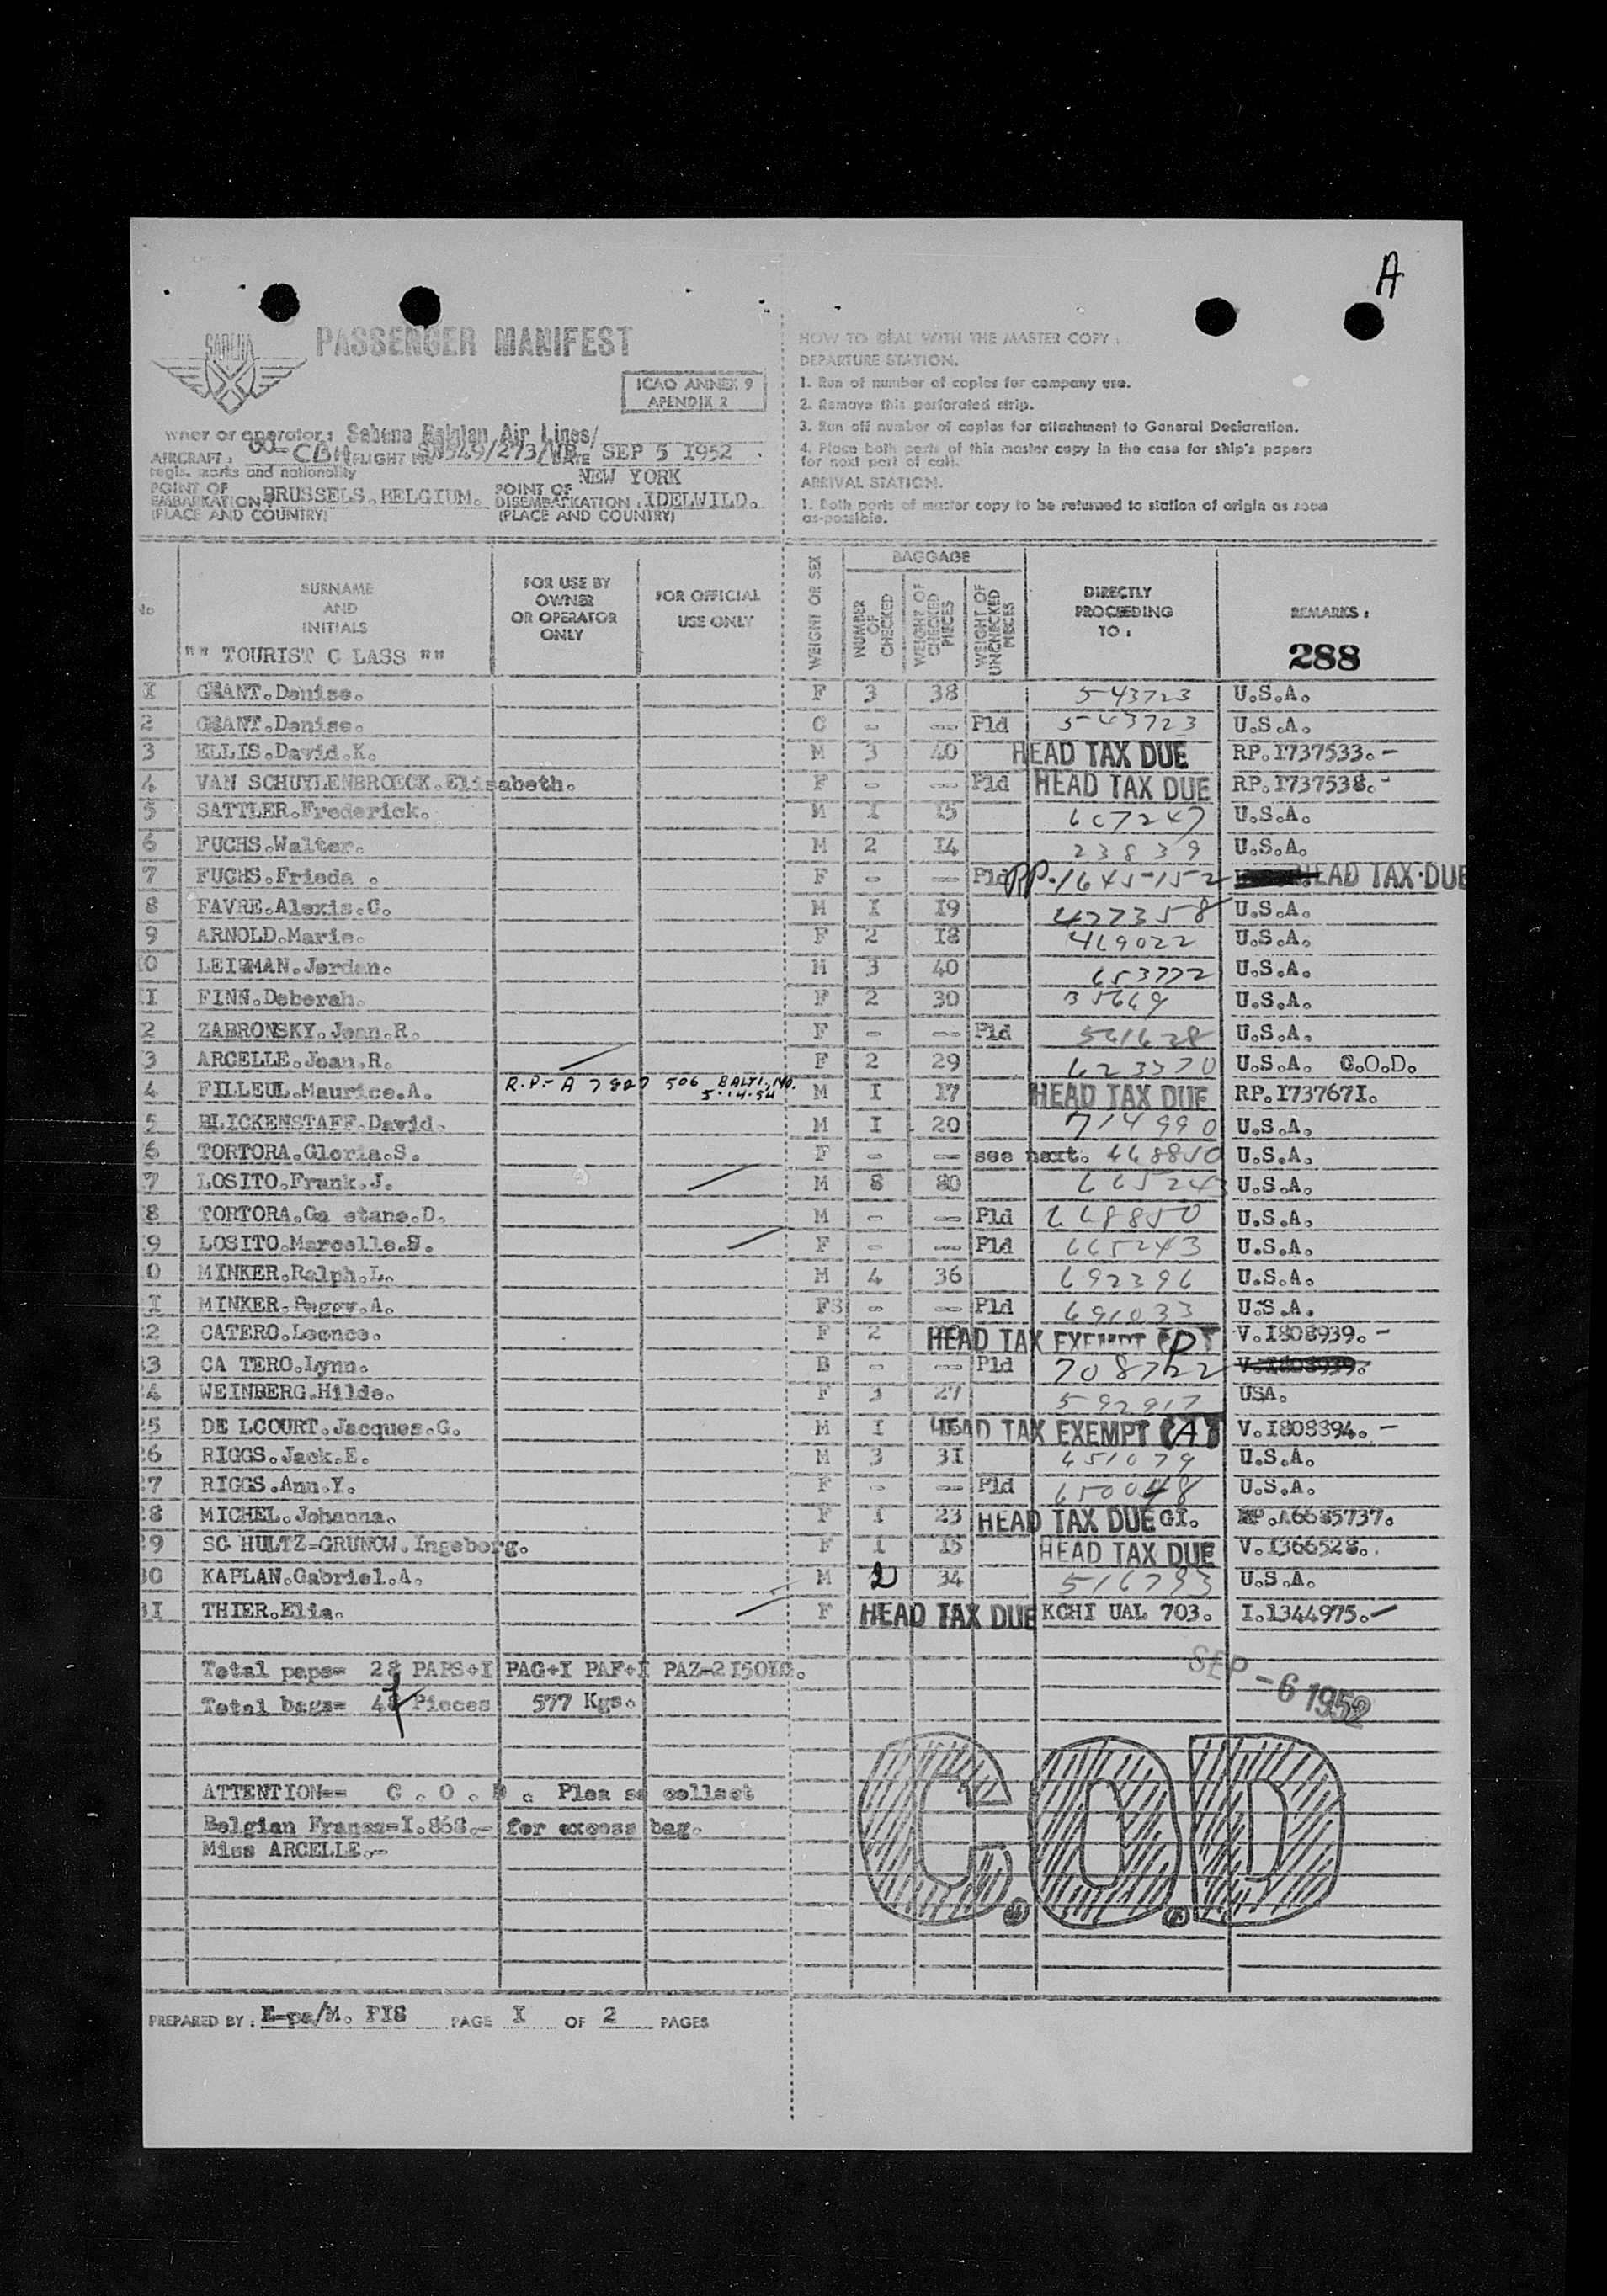 A
SABENA
PASSENGER MANIFEST
ICAO ANNEX 9
APENDIX 2
wner or operator : Sabena Belgian Air Lines/
AIRCRAFT : OO-CBH FLIGHT No SN549/273/VR DATE SEP 5 1952
regis. marks and nationality
NEW YORK
POINT OF EMBARKATION : BRUSSELS.BELGIUM. POINT OF DISEMBARKATION : IDELWILD.
(PLACE AND COUNTRY) (PLACE AND COUNTRY)
HOW TO DEAL WITH THE MASTER COPY :
DEPARTURE STATION.
1. Run of number of copies for company use.
2. Remove this perforated strip.
3. Run off number of copies for attachment to General Declaration.
4. Place both parts of this master copy in the case for ship's papers
for next port of call.
ARRIVAL STATION.
1. Both parts of master copy to be returned to station of origin as soon
as-possible.
No
SURNAME AND INITIALS
FOR USE BY OWNER OR OPERATOR ONLY
FOR OFFICIAL USE ONLY
WEIGHT OR SEX
BAGGAGE
NUMBER OF CHECKED
WEIGHT OF CHECKED PIECES
WEIGHT OF UNCHECKED PIECES
DIRECTLY PROCEEDING TO :
REMARKS :
"" TOURIST C LASS ""
288
I GRANT.Denise. F 3 38 543723 U.S.A.
2 GRANT.Denise. C - -- Pld 543723 U.S.A.
3 ELLIS.David.K. M 3 40 HEAD TAX DUE RP.I737533.-
4 VAN SCHUYLENBROECK.Elisabeth. F - - Pld HEAD TAX DUE RP.I737538.-
5 SATTLER.Frederick. M I I5 607247 U.S.A.
6 FUCHS.Walter. M 2 I4 23839 U.S.A.
7 FUCHS.Frieda . F - -- Pld PP.1645152 HEAD TAX DUE
8 FAVRE.Alexis.C. M I I9 427358 U.S.A.
9 ARNOLD.Marie. F 2 I8 469022 U.S.A.
0 LEISMAN.Jordan. M 3 40 653772 U.S.A.
I FINN.Deberah. F 2 30 35669 U.S.A.
2 ZABRONSKY.Jean.R. F - -- Pld 541628 U.S.A.
3 ARCELLE.Jean.R. F 2 29 623370 U.S.A. C.O.D.
4 FILLEUL.Maurice.A. R.P.- A 7827 506 BALTI., MD. 5-14-54 M I I7 HEAD TAX DUE RP.I73767I.
5 BLICKENSTAFF.David. M I 20 714990 U.S.A.
6 TORTORA.Gloria.S. F - -- see next. 668850 U.S.A.
7 LOSITO.Frank.J. M 8 80 665243 U.S.A.
8 TORTORA.Ga etano.D. M - -- Pld 668850 U.S.A.
9 LOSITO.Marcelle.S. F - -- Pld 665243 U.S.A.
0 MINKER.Ralph.L. M 4 36 692396 U.S.A.
I MINKER.Peggy.A. F - -- Pld 691033 U.S.A.
2 CATERO.Leonce. F 2 HEAD TAX EXEMPT (P) V.I808939.-
3 CA TERO.Lynn. B - -- Pld 708722 V.I808939.
4 WEINBERG.Hilde. F 3 27 592917 USA.
5 DE LCOURT.Jacques.G. M I HEAD TAX EXEMPT (A) V.I808894.-
26 RIGGS.Jack.E. M 3 3I 451079 U.S.A.
27 RIGGS.Ann.Y. F - -- Pld 650048 U.S.A.
28 MICHEL.Johanna. F I 23 HEAD TAX DUE GI. RP.A6685737.
29 SC HULTZ-GRUNOW.Ingeborg. F I I5 HEAD TAX DUE V.I366528.
30 KAPLAN.Gabriel.A. M 2 34 516793 U.S.A.
3I THIER.Elia. F HEAD TAX DUE KCHI UAL 703. I.1344975.-
Total paps= 28 PAPS+I PAG+I PAF+I PAZ=2150KG.
Total bags= 47 Pieces 577 Kgs.
SEP -6 1952
ATTENTION== C . O . D . Plea se collect
Belgian Francs=I.868.- for excess bag.
Miss ARCELLE.-
C.O.D
PREPARED BY : E-pa/M. PIS PAGE I OF 2 PAGES